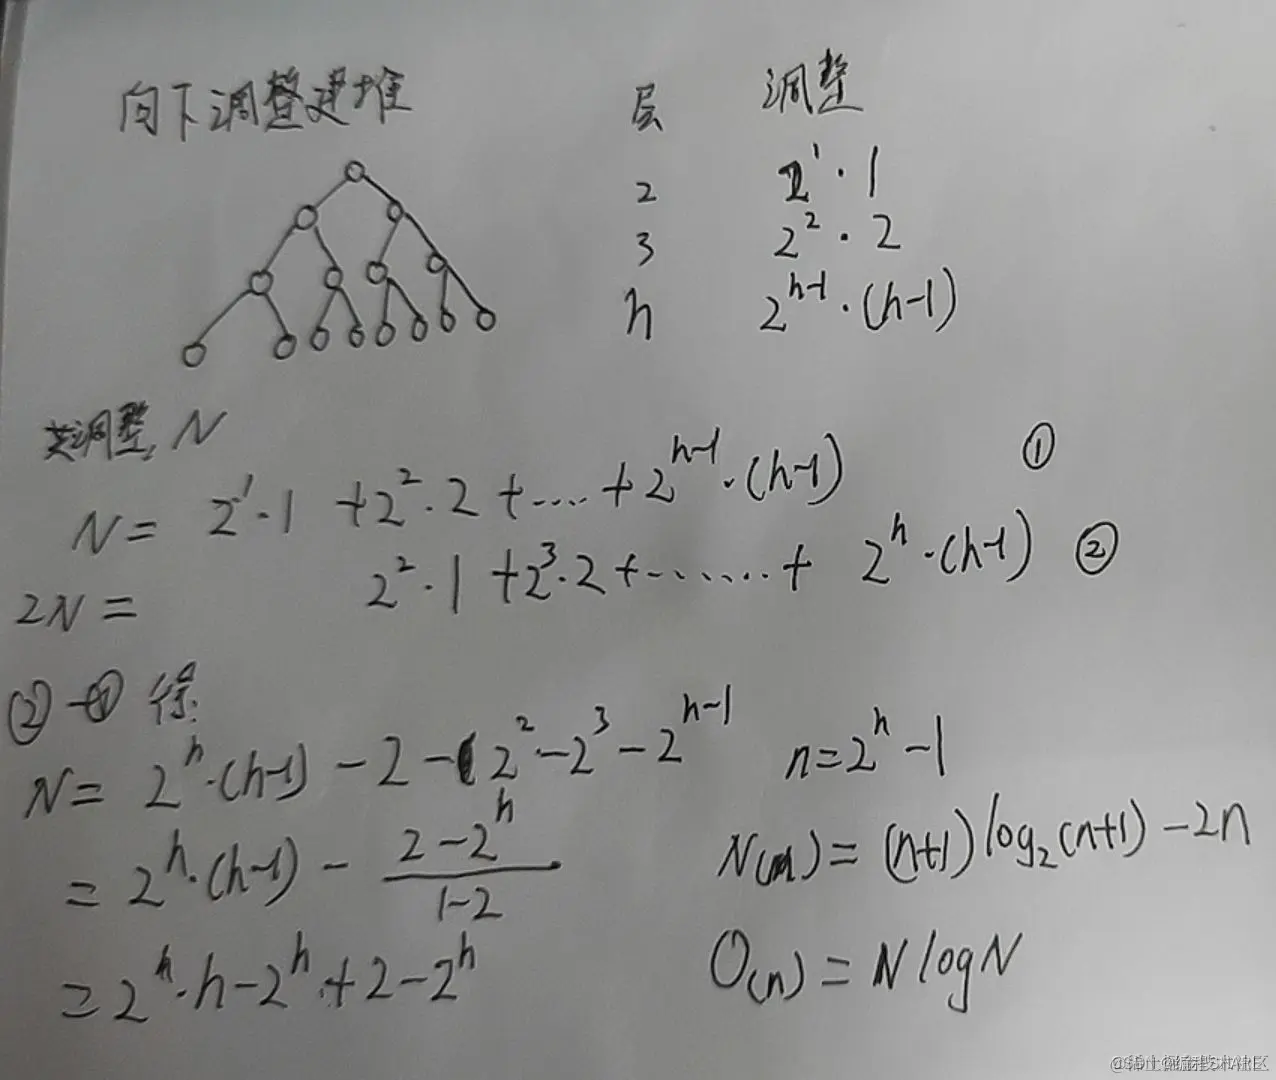 向下调整建堆
层 调整
2 2¹·1
3 2²·2
h 2ʰ⁻¹·(h-1)
共调整, N
N= 2¹·1 +2²·2 +....+2ʰ⁻¹·(h-1) ①
2N= 2²·1 +2³·2+.......+ 2ʰ·(h-1) ②
②-① 得:
N= 2ʰ·(h-1) -2-2²-2³-2ʰ⁻¹
= 2ʰ·(h-1) - (2-2ʰ)/(1-2)
= 2ʰ·h-2ʰ+2-2ʰ
n=2ʰ-1
N(n)= (n+1)log₂(n+1)-2n
O(n)= NlogN